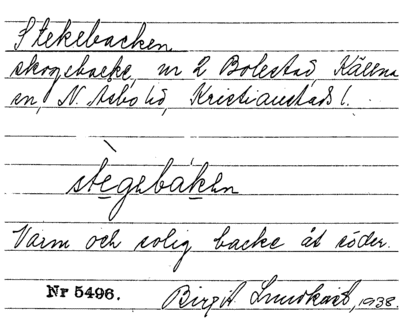 Stekebacken
skogsbacke, nr 2 Bolestad, Källna
sn, N. Åsbo hd, Kristianstads l.
stegebàken
Varm och solig backe åt söder.
Nr 5496.
Birgit Lundkvist, 1938.